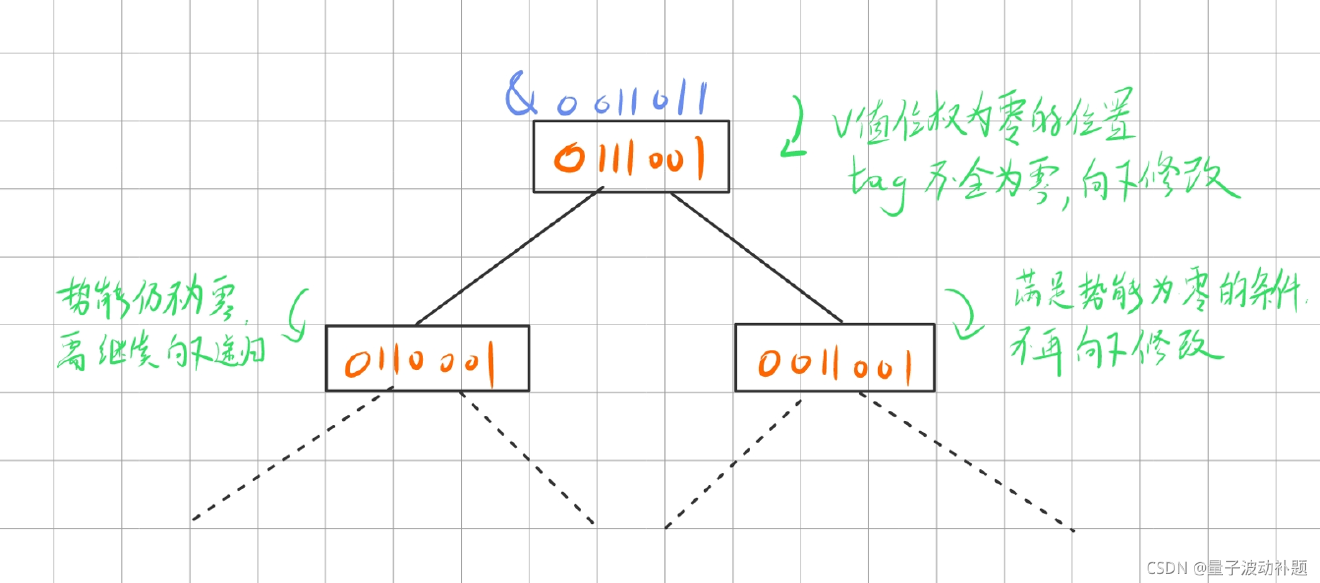 & 0011011
0111001
V值位权为零的位置
tag 不全为零,向下修改
势能仍不为零,
需继续向下递归
0110001
满足势能为零的条件,
不再向下修改
0011001
CSDN @量子波动补题